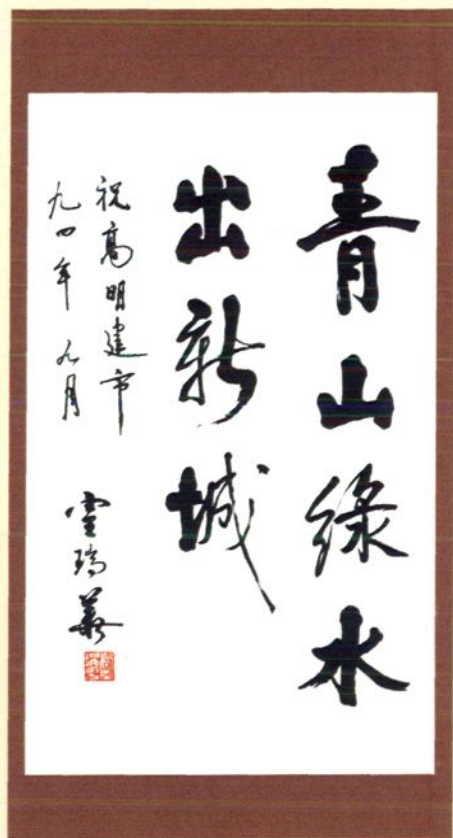 青山綠水
出新城
祝高明建市
九四年 九月
瑞